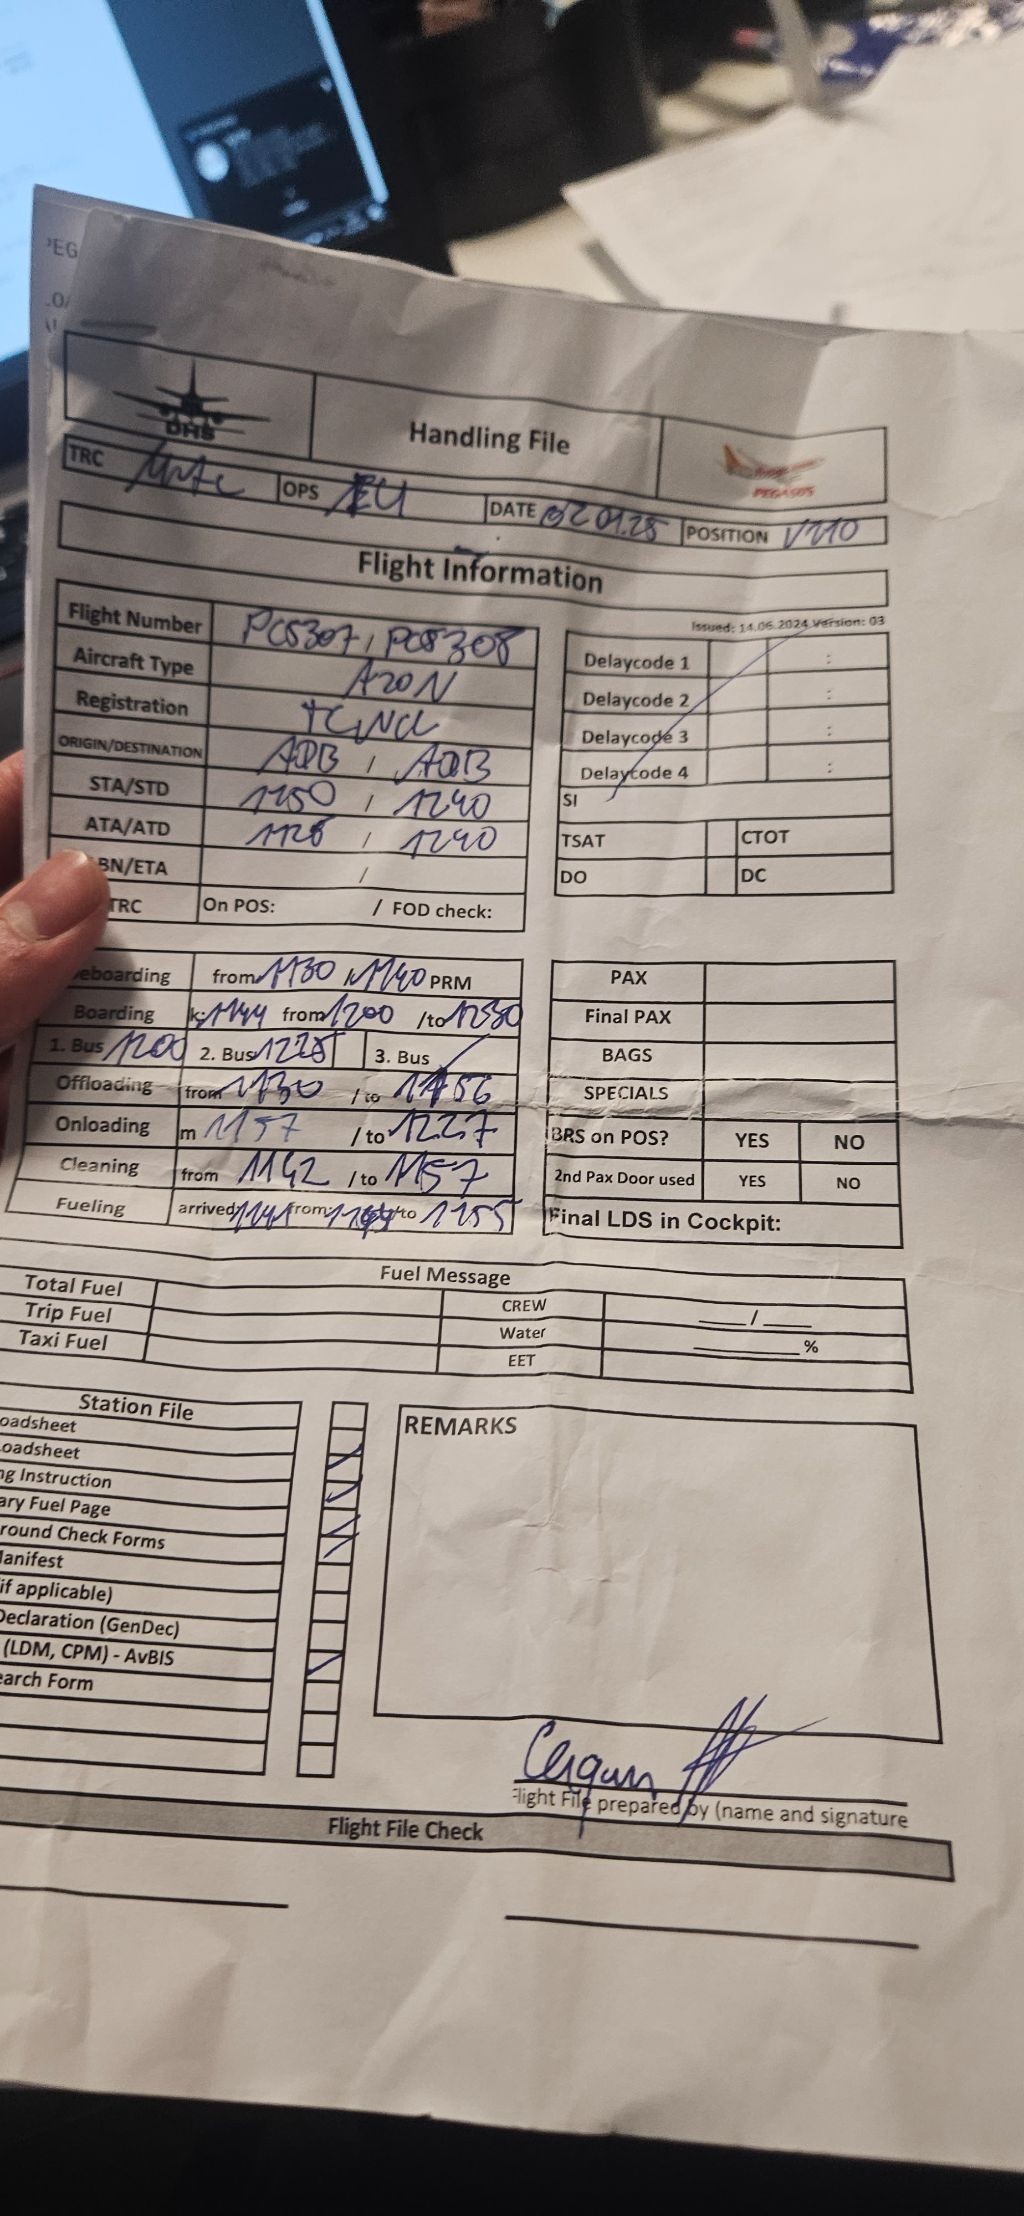 DHS
Handling File
PEGASUS
TRC OPS EU DATE 02.01.25 POSITION V210
Flight Information
Issued: 14.06.2024 Version: 03
Flight Number PC5307 / PC5308
Aircraft Type A20N
Registration TCNCL
ORIGIN/DESTINATION ADB / ADB
STA/STD 1150 / 1240
ATA/ATD 1128 / 1240
BN/ETA /
TRC On POS: / FOD check:
Delaycode 1 :
Delaycode 2 :
Delaycode 3 :
Delaycode 4 :
SI
TSAT CTOT
DO DC
eboarding from 1130 / 1140 PRM
Boarding k: 1144 from 1200 /to 1230
1. Bus 1200 2. Bus 1225 3. Bus
Offloading from 1130 /to 1156
Onloading m 1157 /to 1227
Cleaning from 1142 /to 1157
Fueling arrived 1141 from /to 1155
PAX
Final PAX
BAGS
SPECIALS
BRS on POS? YES NO
2nd Pax Door used YES NO
Final LDS in Cockpit:
Fuel Message
Total Fuel CREW ___/___
Trip Fuel Water ________%
Taxi Fuel EET
Station File
oadsheet
oadsheet
ng Instruction
ary Fuel Page
round Check Forms
Manifest
if applicable)
Declaration (GenDec)
(LDM, CPM) - AvBIS
earch Form
REMARKS
Flight File prepared by (name and signature
Flight File Check